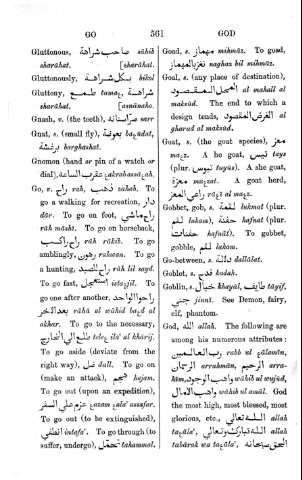 GO 561 GOD
Gluttonous, صاحب شراهة sâhib
sharâhat. [sharâhat.
Gluttonously, بكل شراهة bikol
Gluttony, طمع tamaع, شراهة
sharâhat. [asnânaho.
Gnash, v. (the teeth), صر اسنانه sarr
Gnat, s. (small fly), بعوضة
برغشة barghashat.
Gnomon (hand or pin of a watch or
dial), عقرب الساعة
Go, v. راح râh, ذهب zahab. To
go a walking for recreation, دار
dâr. To go on foot, راح ماشي
râh mâshi. To go on horseback,
راح راكب râh râkib. To go
amblingly, رهون rahwan. To go
a hunting, راح للصيد râh lil sayd.
To go fast, استعجل istaعjil. To
go one after another,
راحوا الواحد بعد الاخر râhû al wâhid baعd al
akhar. To go to the necessary,
طلع الي الخارج telaع ila' al khârij.
To go aside (deviate from the
right way), ضل dall. To go on
(make an attack), هجم hajam.
To go out (upon an expedition),
عزم علي السفر عazam عala' assafar.
To go out (to be extinguished),
انطفي intafa'. To go through (to
suffer, undergo), تحمل tahammal.
Goad, s. مهماز mihmâz. To goad,
نغز بالمهماز naghaz bil mihmâz.
Goal, s. (any place of destination),
المحل المقصود al mahall al
maksûd. The end to which a
design tends, الغرض المقصود al
gharad al maksûd.
Goat, s. (the goat species), معز
maعz. A he goat, تيس tays
(plur. تيوس tuyûs). A she goat,
معزة maعzat. A goat herd,
راعي المعز râعî al maعz.
Gobbet, gob, s. لقمة lukmat (plur.
لقم lukam), حفنة hafnat (plur.
حفنات hafnât). To gobbet,
gobble, لقم lakam.
Go-between, s. دلالة dallâlat.
Goblet, s. قدح kadah.
Goblin, s. خيال khayâl, طايف tâyif,
جني jinnî. See Demon, fairy,
elf, phantom.
God, الله allah. The following are
among his numerous attributes:
رب العالمين rabb ul عâlamîn,
الرحمن arrahmân, الرحيم arra-
hîm, واهب الوجود wâhib ul wujûd,
واهب الامال wâhib ul amâl. God
the most high, most blessed, most
glorious, etc., الله تعالي allah
taعâla', الله تبارك وتعالي allah
tabârak wa taعâla', الحق سبحانه